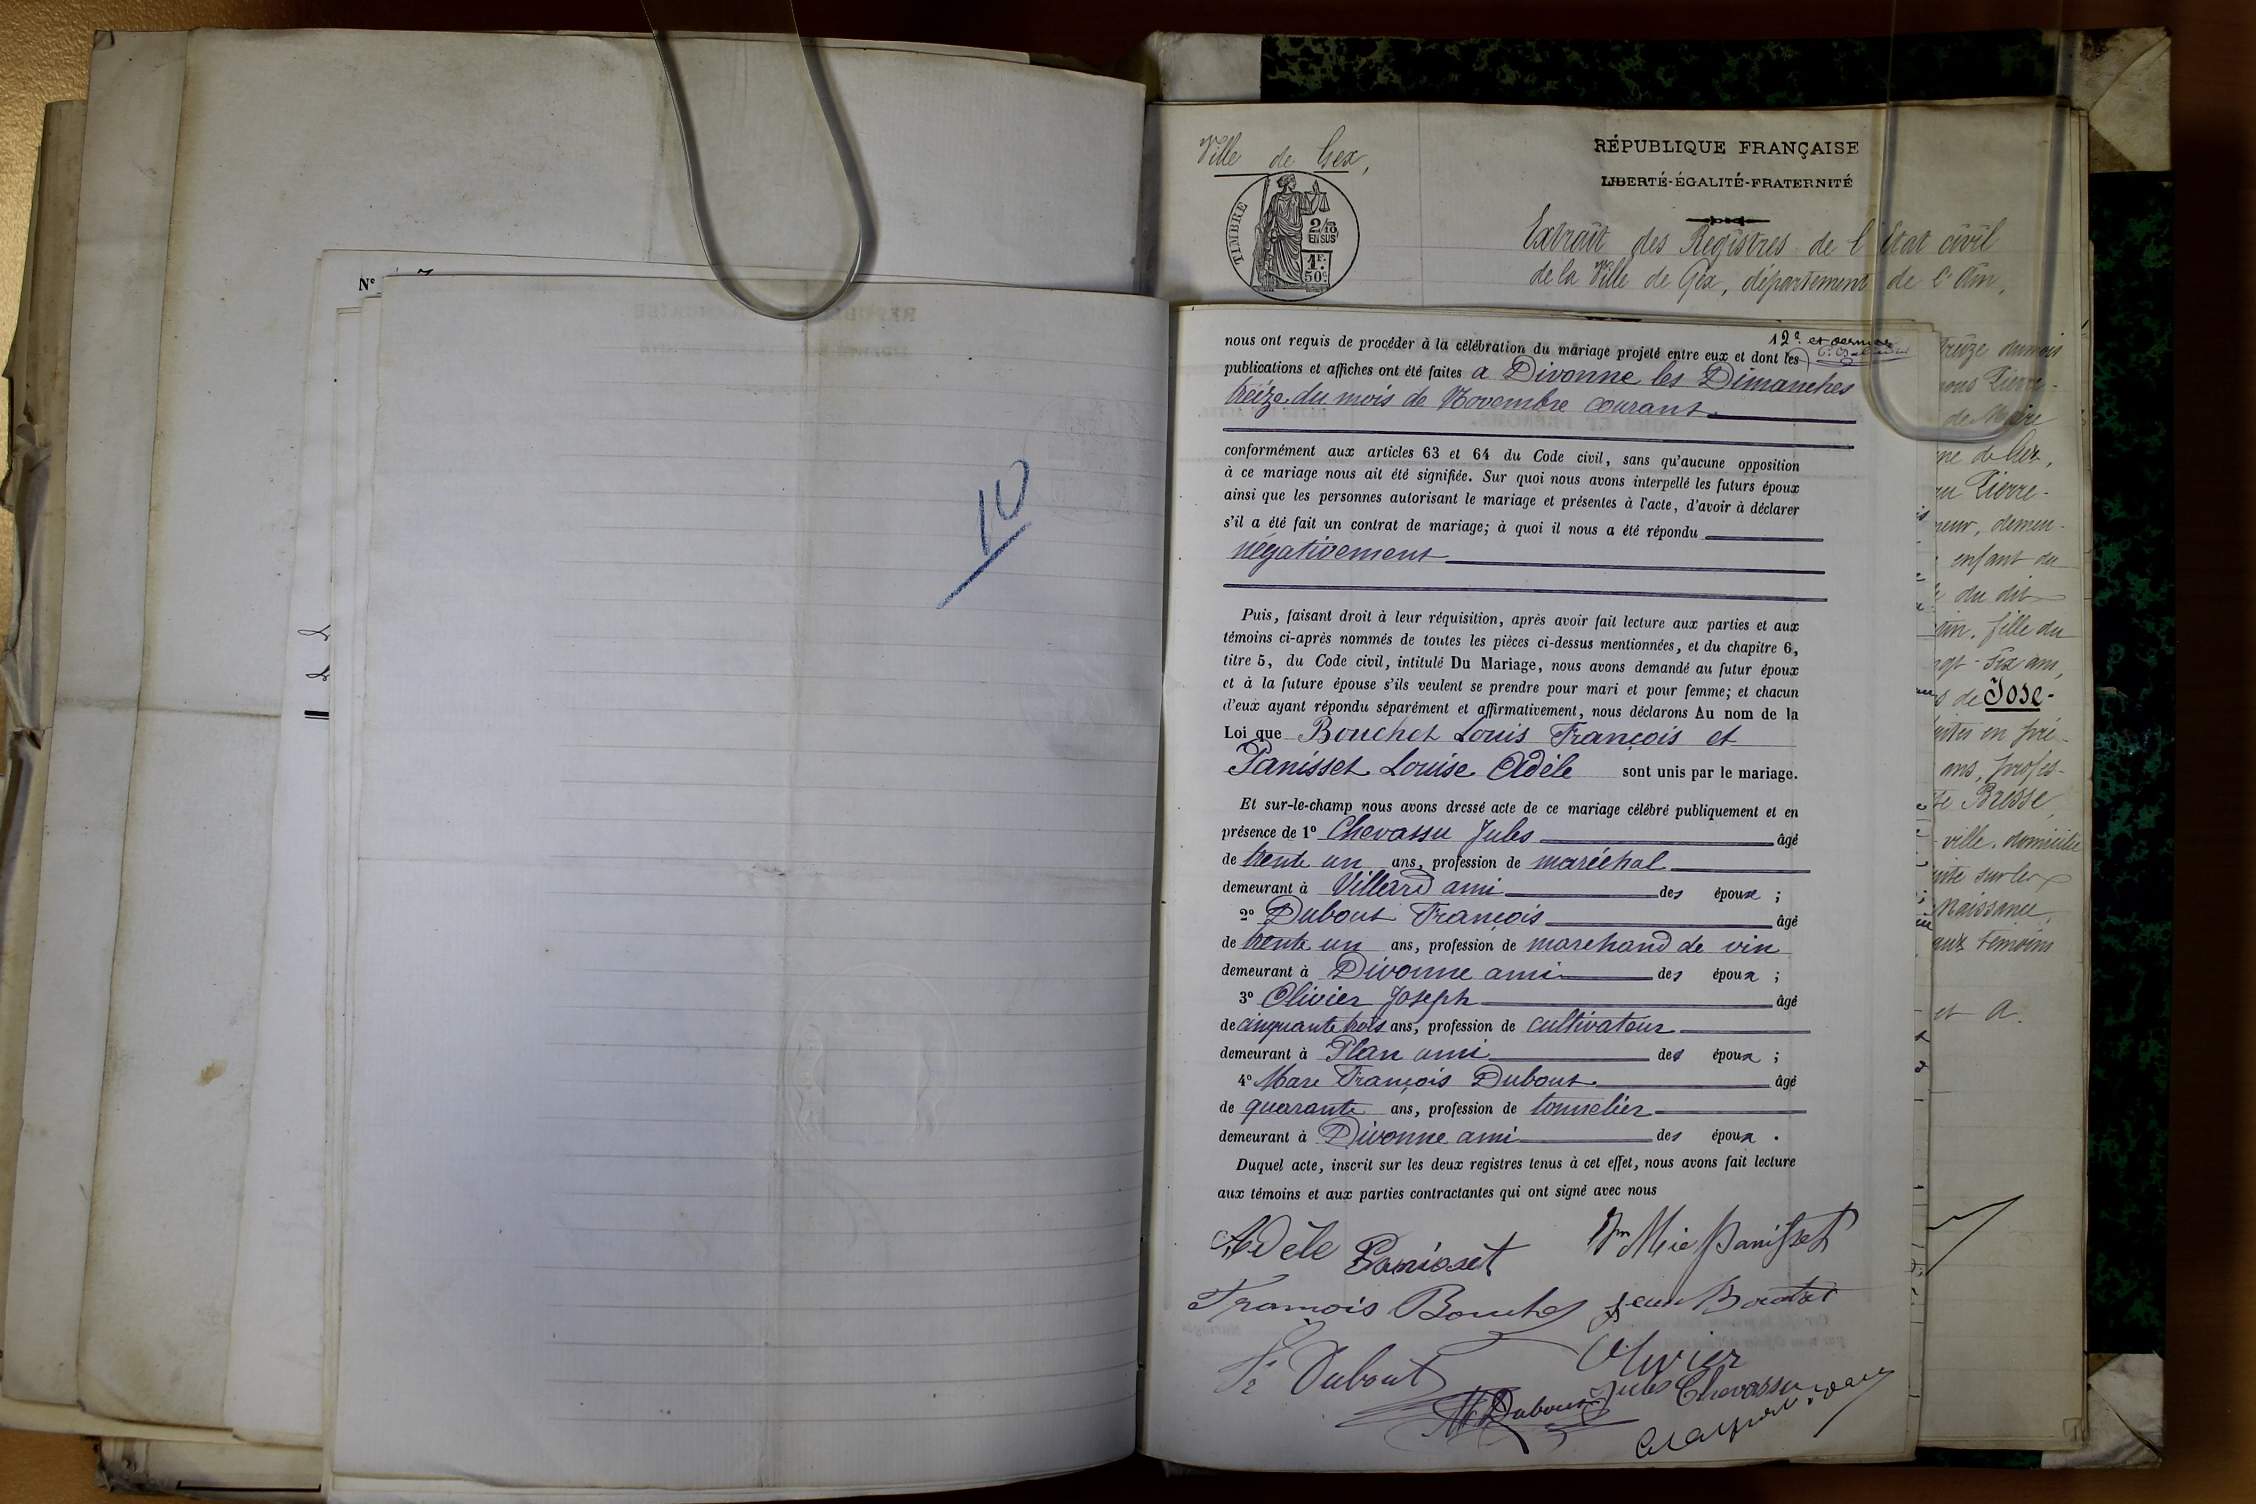 Nº
10
Ville de Gex,
RÉPUBLIQUE FRANÇAISE
LIBERTÉ-ÉGALITÉ-FRATERNITÉ
TIMBRE
2/10
EN SUS
1F.
50c.
Extrait des Registres de l'Etat civil
de la Ville de Gex, département de l'Ain,
12e et dernier
nous ont requis de procéder à la célébration du mariage projeté entre eux et dont les
publications et affiches ont été faites a Divonne les Dimanches
treize du mois de Novembre courant.
conformément aux articles 63 et 64 du Code civil, sans qu'aucune opposition
à ce mariage nous ait été signifiée. Sur quoi nous avons interpellé les futurs époux
ainsi que les personnes autorisant le mariage et présentes à l'acte, d'avoir à déclarer
s'il a été fait un contrat de mariage; à quoi il nous a été répondu
négativement
Puis, faisant droit à leur réquisition, après avoir fait lecture aux parties et aux
témoins ci-après nommés de toutes les pièces ci-dessus mentionnées, et du chapitre 6,
titre 5, du Code civil, intitulé Du Mariage, nous avons demandé au futur époux
et à la future épouse s'ils veulent se prendre pour mari et pour femme; et chacun
d'eux ayant répondu séparément et affirmativement, nous déclarons Au nom de la
Loi que Bouchet Louis François et
Panisset Louise Adèle sont unis par le mariage.
Et sur-le-champ nous avons dressé acte de ce mariage célébré publiquement et en
présence de 1º Chevassu Jules âgé
de trente un ans, profession de maréchal
demeurant à Villard ami des époux ;
2º Dubout François âgé
de trente un ans, profession de marchand de vin
demeurant à Divonne ami des époux ;
3º Olivier Joseph âgé
de cinquante trois ans, profession de cultivateur
demeurant à Plan ami des époux ;
4º Marc François Dubout âgé
de quarante ans, profession de tonnelier
demeurant à Divonne ami des époux .
Duquel acte, inscrit sur les deux registres tenus à cet effet, nous avons fait lecture
aux témoins et aux parties contractantes qui ont signé avec nous
Adèle Panisset
Mie Panisset
François Bouchet
Olivier
Fs Dubout
Jules Chevassu
M Dubout
treize du mois
de Maire
de Gex,
Pierre-
enfant du
du dit
fille du
six ans,
de José-
ans, profes-
Bresse,
ville, domicilié
sur les
Naissance,
aux témoins
et A.